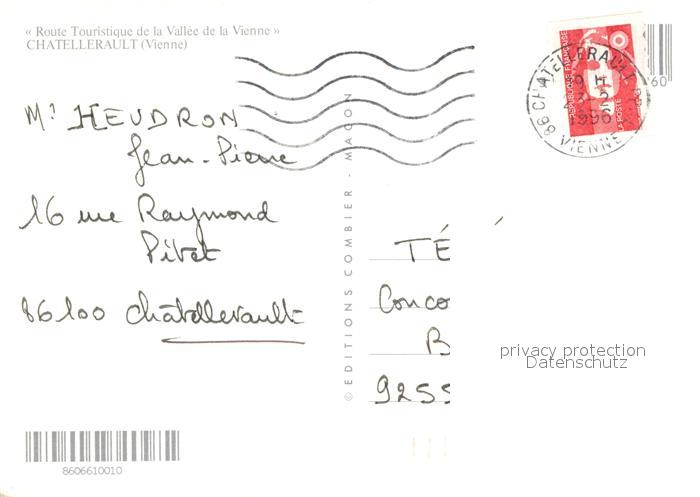 « Route Touristique de la Vallée de la Vienne »
CHATELLERAULT (Vienne)
Mr HEUDRON
Jean-Pierre
16 rue Raymond
Pitet
86100 Châtellerault
8606610010
© EDITIONS COMBIER - MACON
TÉ
Conco
B
9255
privacy protection
Datenschutz
REPUBLIQUE FRANÇAISE
LA POSTE
86 CHATELLERAULT
1996
VIENNE
60